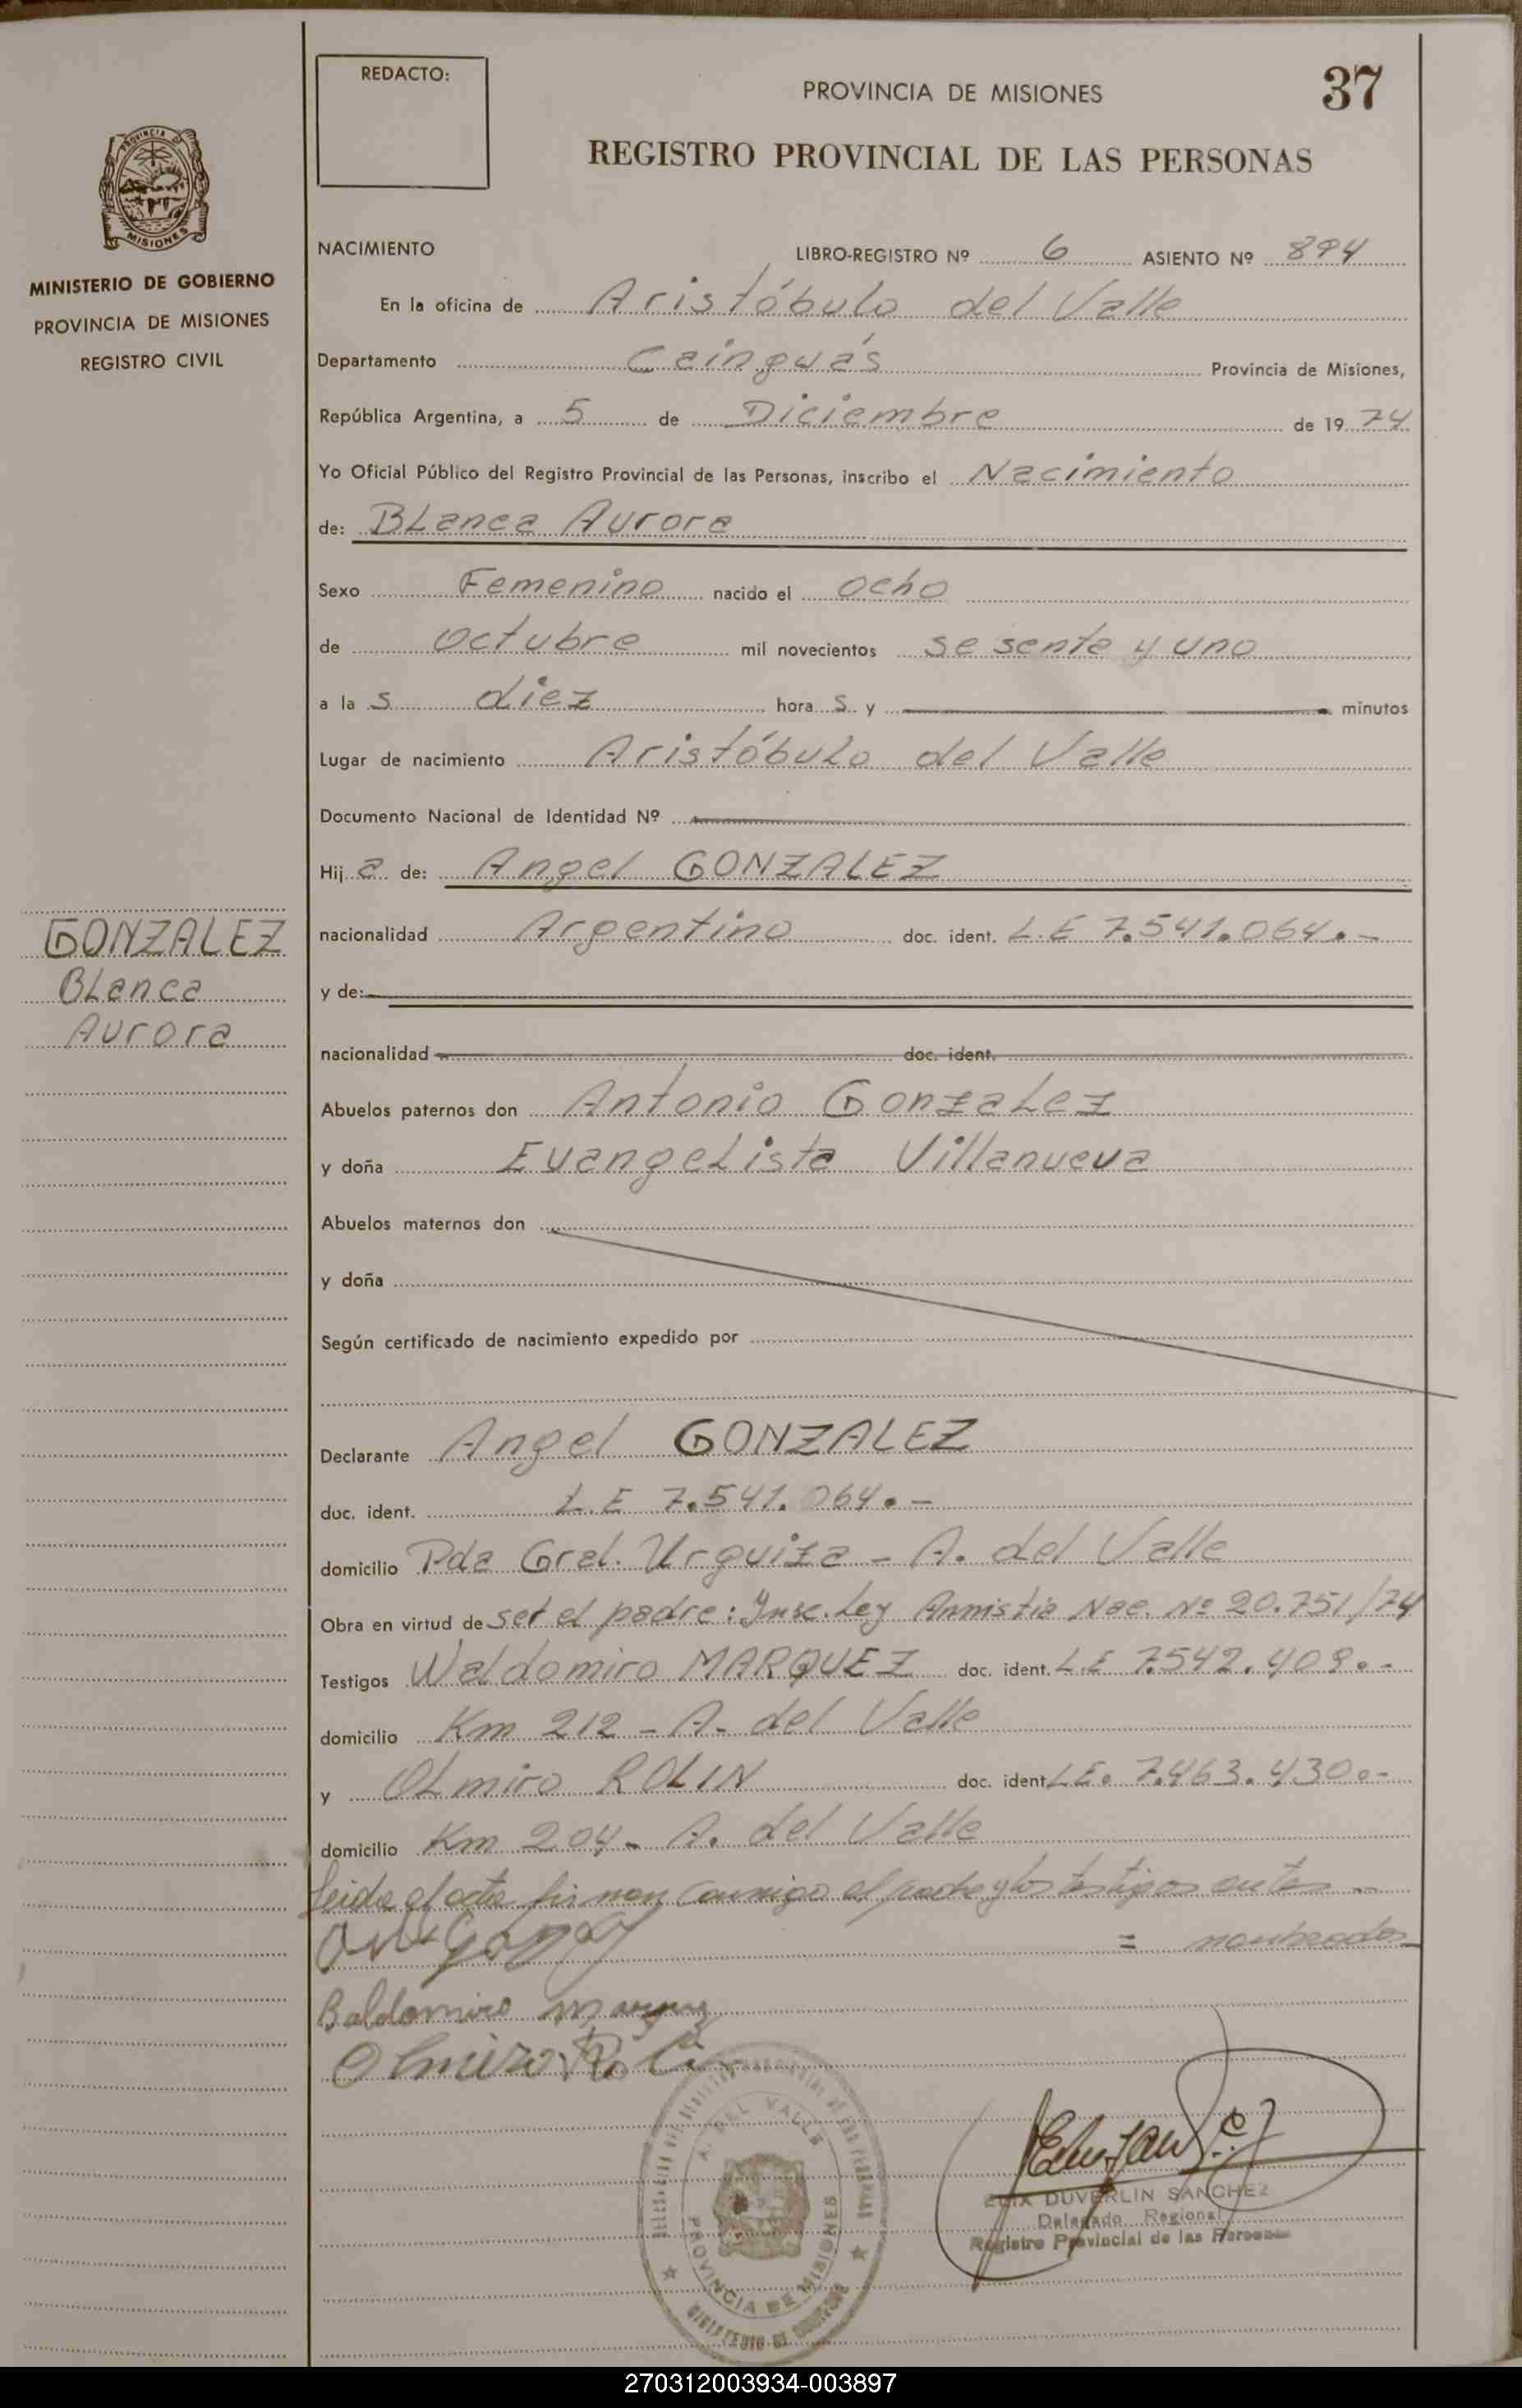 REDACTO:
PROVINCIA DE MISIONES
37
REGISTRO PROVINCIAL DE LAS PERSONAS
MISIONES
MINISTERIO DE GOBIERNO
PROVINCIA DE MISIONES
REGISTRO CIVIL
NACIMIENTO LIBRO-REGISTRO Nº 6 ASIENTO Nº 894
En la oficina de Aristóbulo del Valle
Departamento Cainguás Provincia de Misiones,
República Argentina, a 5 de Diciembre de 19 74
Yo Oficial Público del Registro Provincial de las Personas, inscribo el Nacimiento
de: Blanca Aurora
Sexo Femenino nacido el ocho
de octubre mil novecientos sesenta y uno
a la s diez hora s y minutos
Lugar de nacimiento Aristóbulo del Valle
Documento Nacional de Identidad Nº
Hij a de: Angel GONZALEZ
GONZALEZ
Blanca
Aurora
nacionalidad Argentino doc. ident. L.E 7.541.064.-
y de:
nacionalidad doc. ident.
Abuelos paternos don Antonio Gonzalez
y doña Evangelista Villanueva
Abuelos maternos don
y doña
Según certificado de nacimiento expedido por
Declarante Angel GONZALEZ
doc. ident. L.E 7.541.064.-
domicilio Pda Gral. Urquiza - A. del Valle
Obra en virtud de ser el padre: Insc. Ley Amnistia Nac. Nº 20.751/74
Testigos Waldomiro MARQUEZ doc. ident. L.E 7.542.409.-
domicilio Km 212 - A. del Valle
y Olmiro ROLIN doc. ident. L.E. 7.463.430.-
domicilio Km 204 - A. del Valle
Leida el acta firman conmigo el padre y los testigos antes
= nombrados
Baldomiro Marquez
Olmiro
A. DEL VALLE
PROVINCIA DE MISIONES
MINISTERIO DE GOBIERNO
DUVERLIN SANCHEZ
Delegado Regional
Registro Provincial de las Personas
270312003934-003897